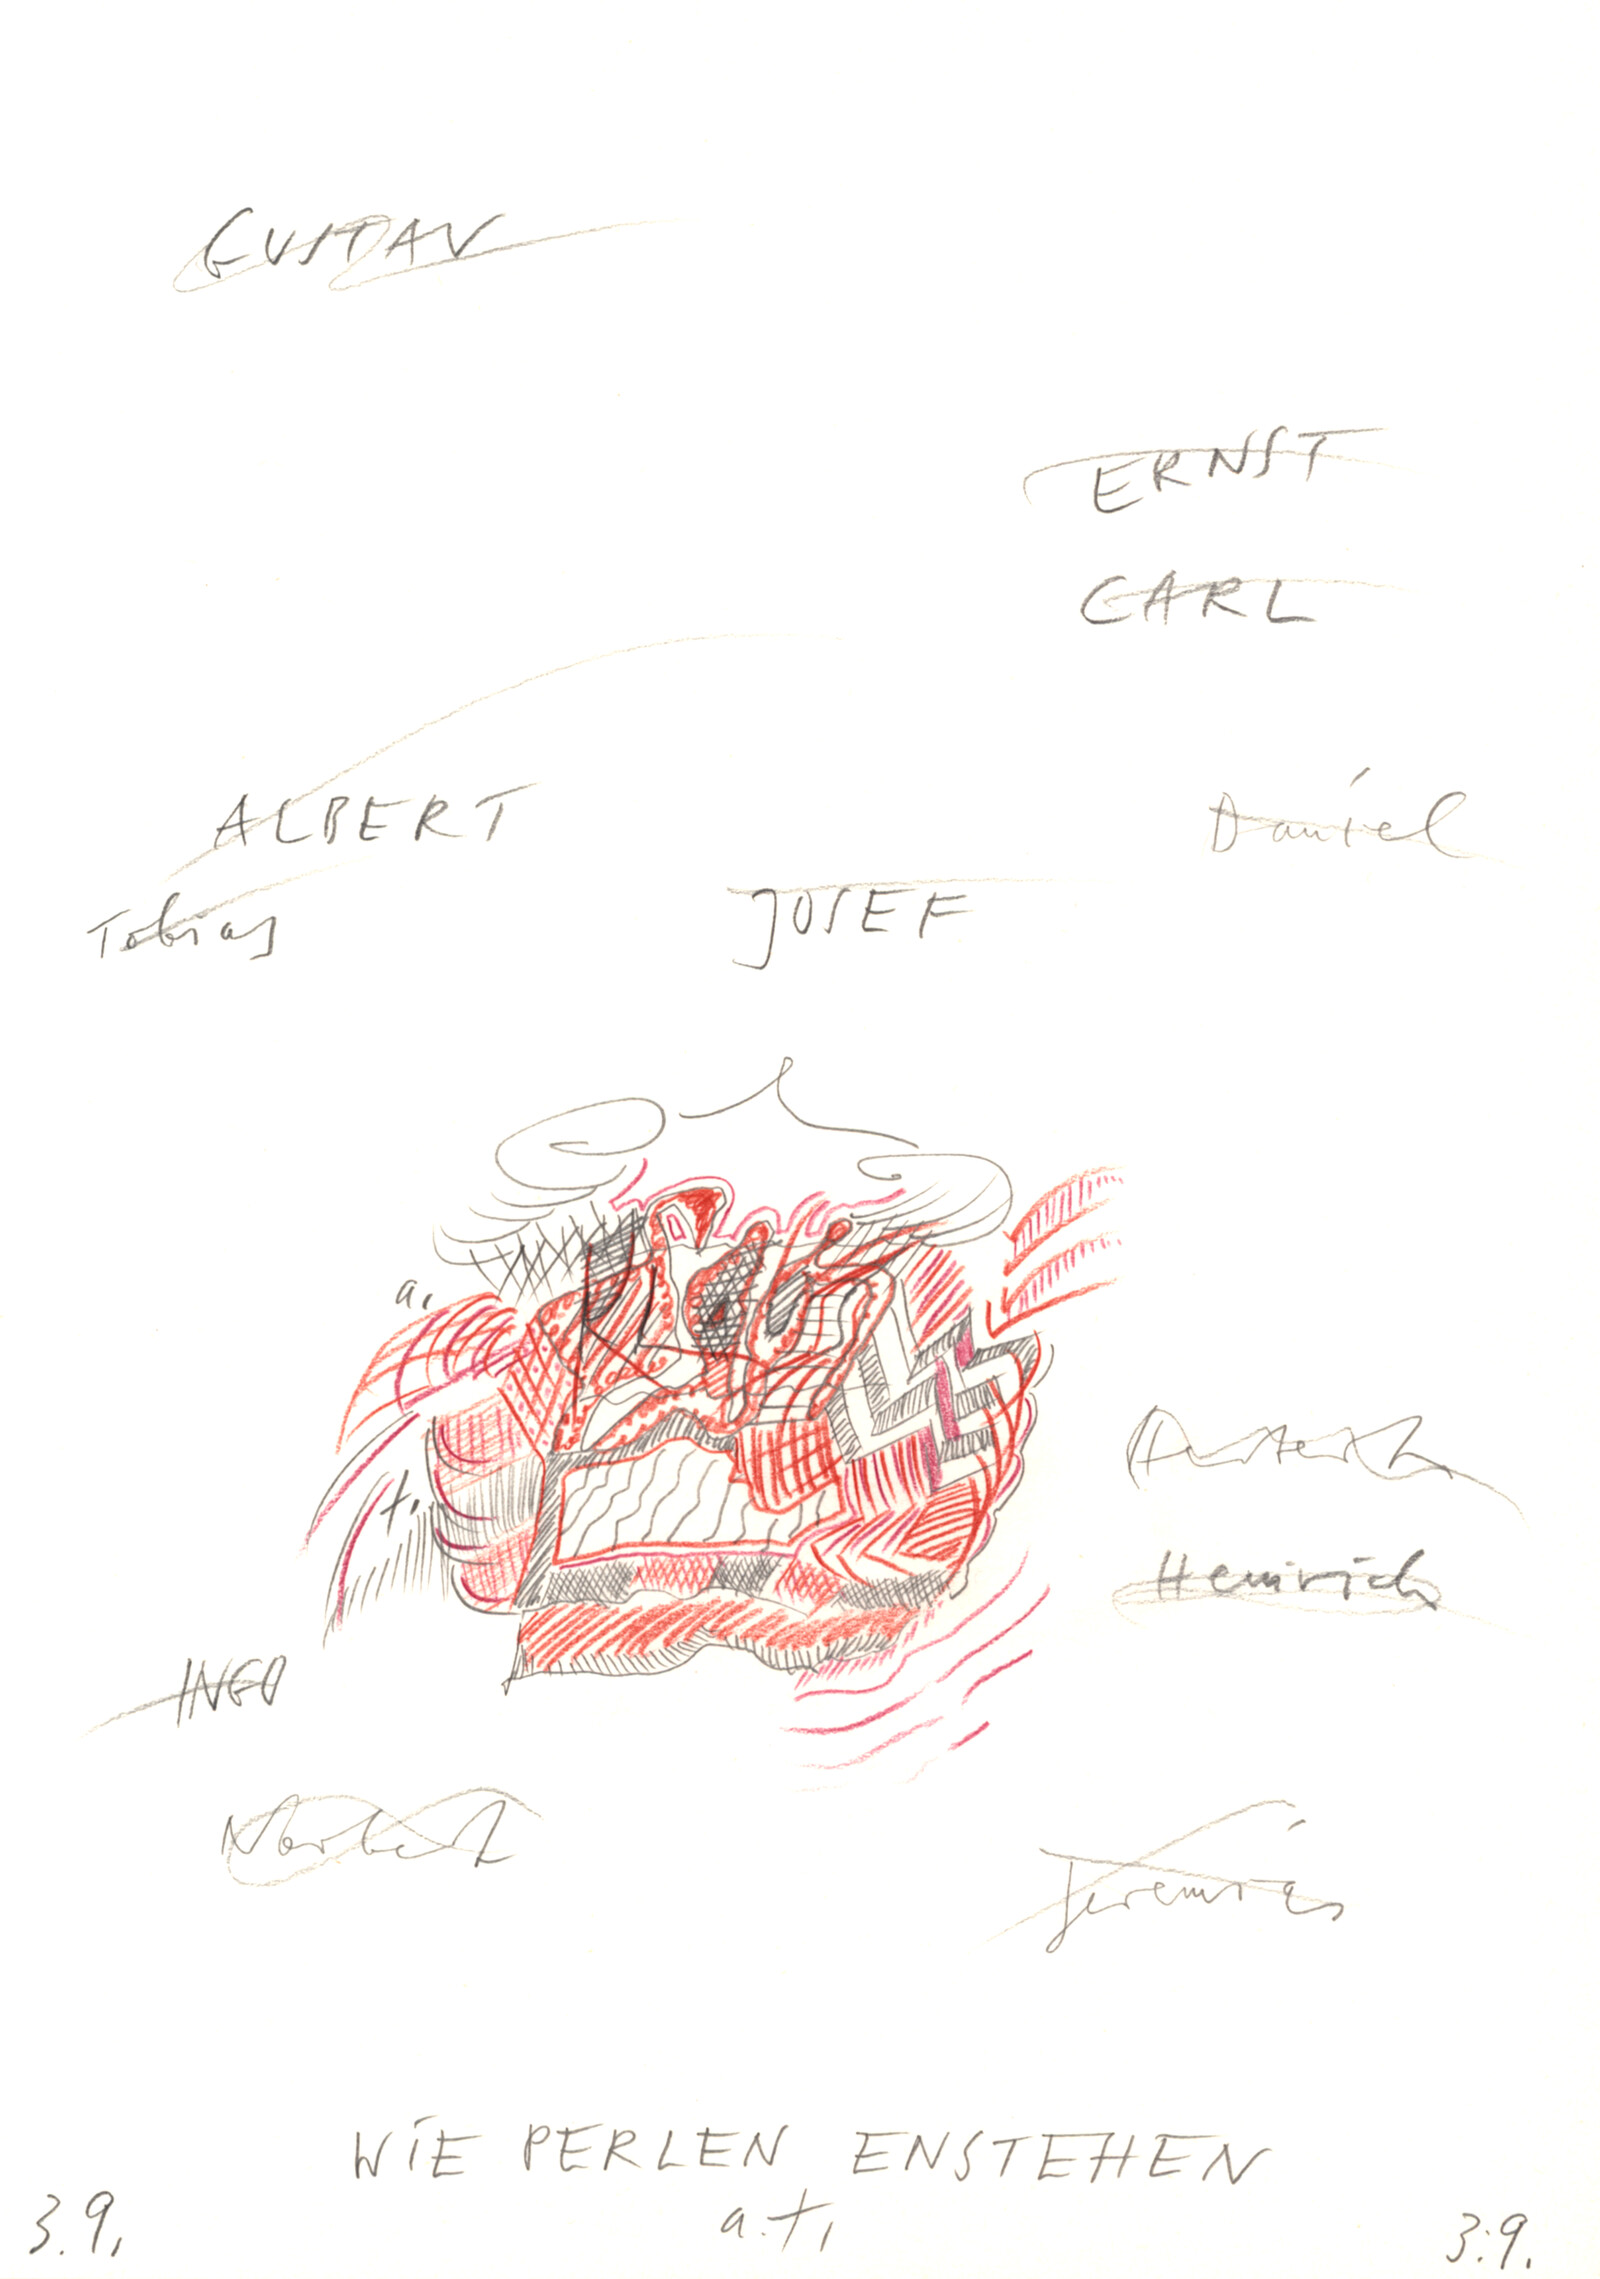 GUSTAV
ERNST
CARL
ALBERT
Daniel
Tobias
JOSEF
a.
t.
Heinrich
INGO
Norbert
Jeremias
WIE PERLEN ENSTEHEN
a.t.
3.9.
3.9.